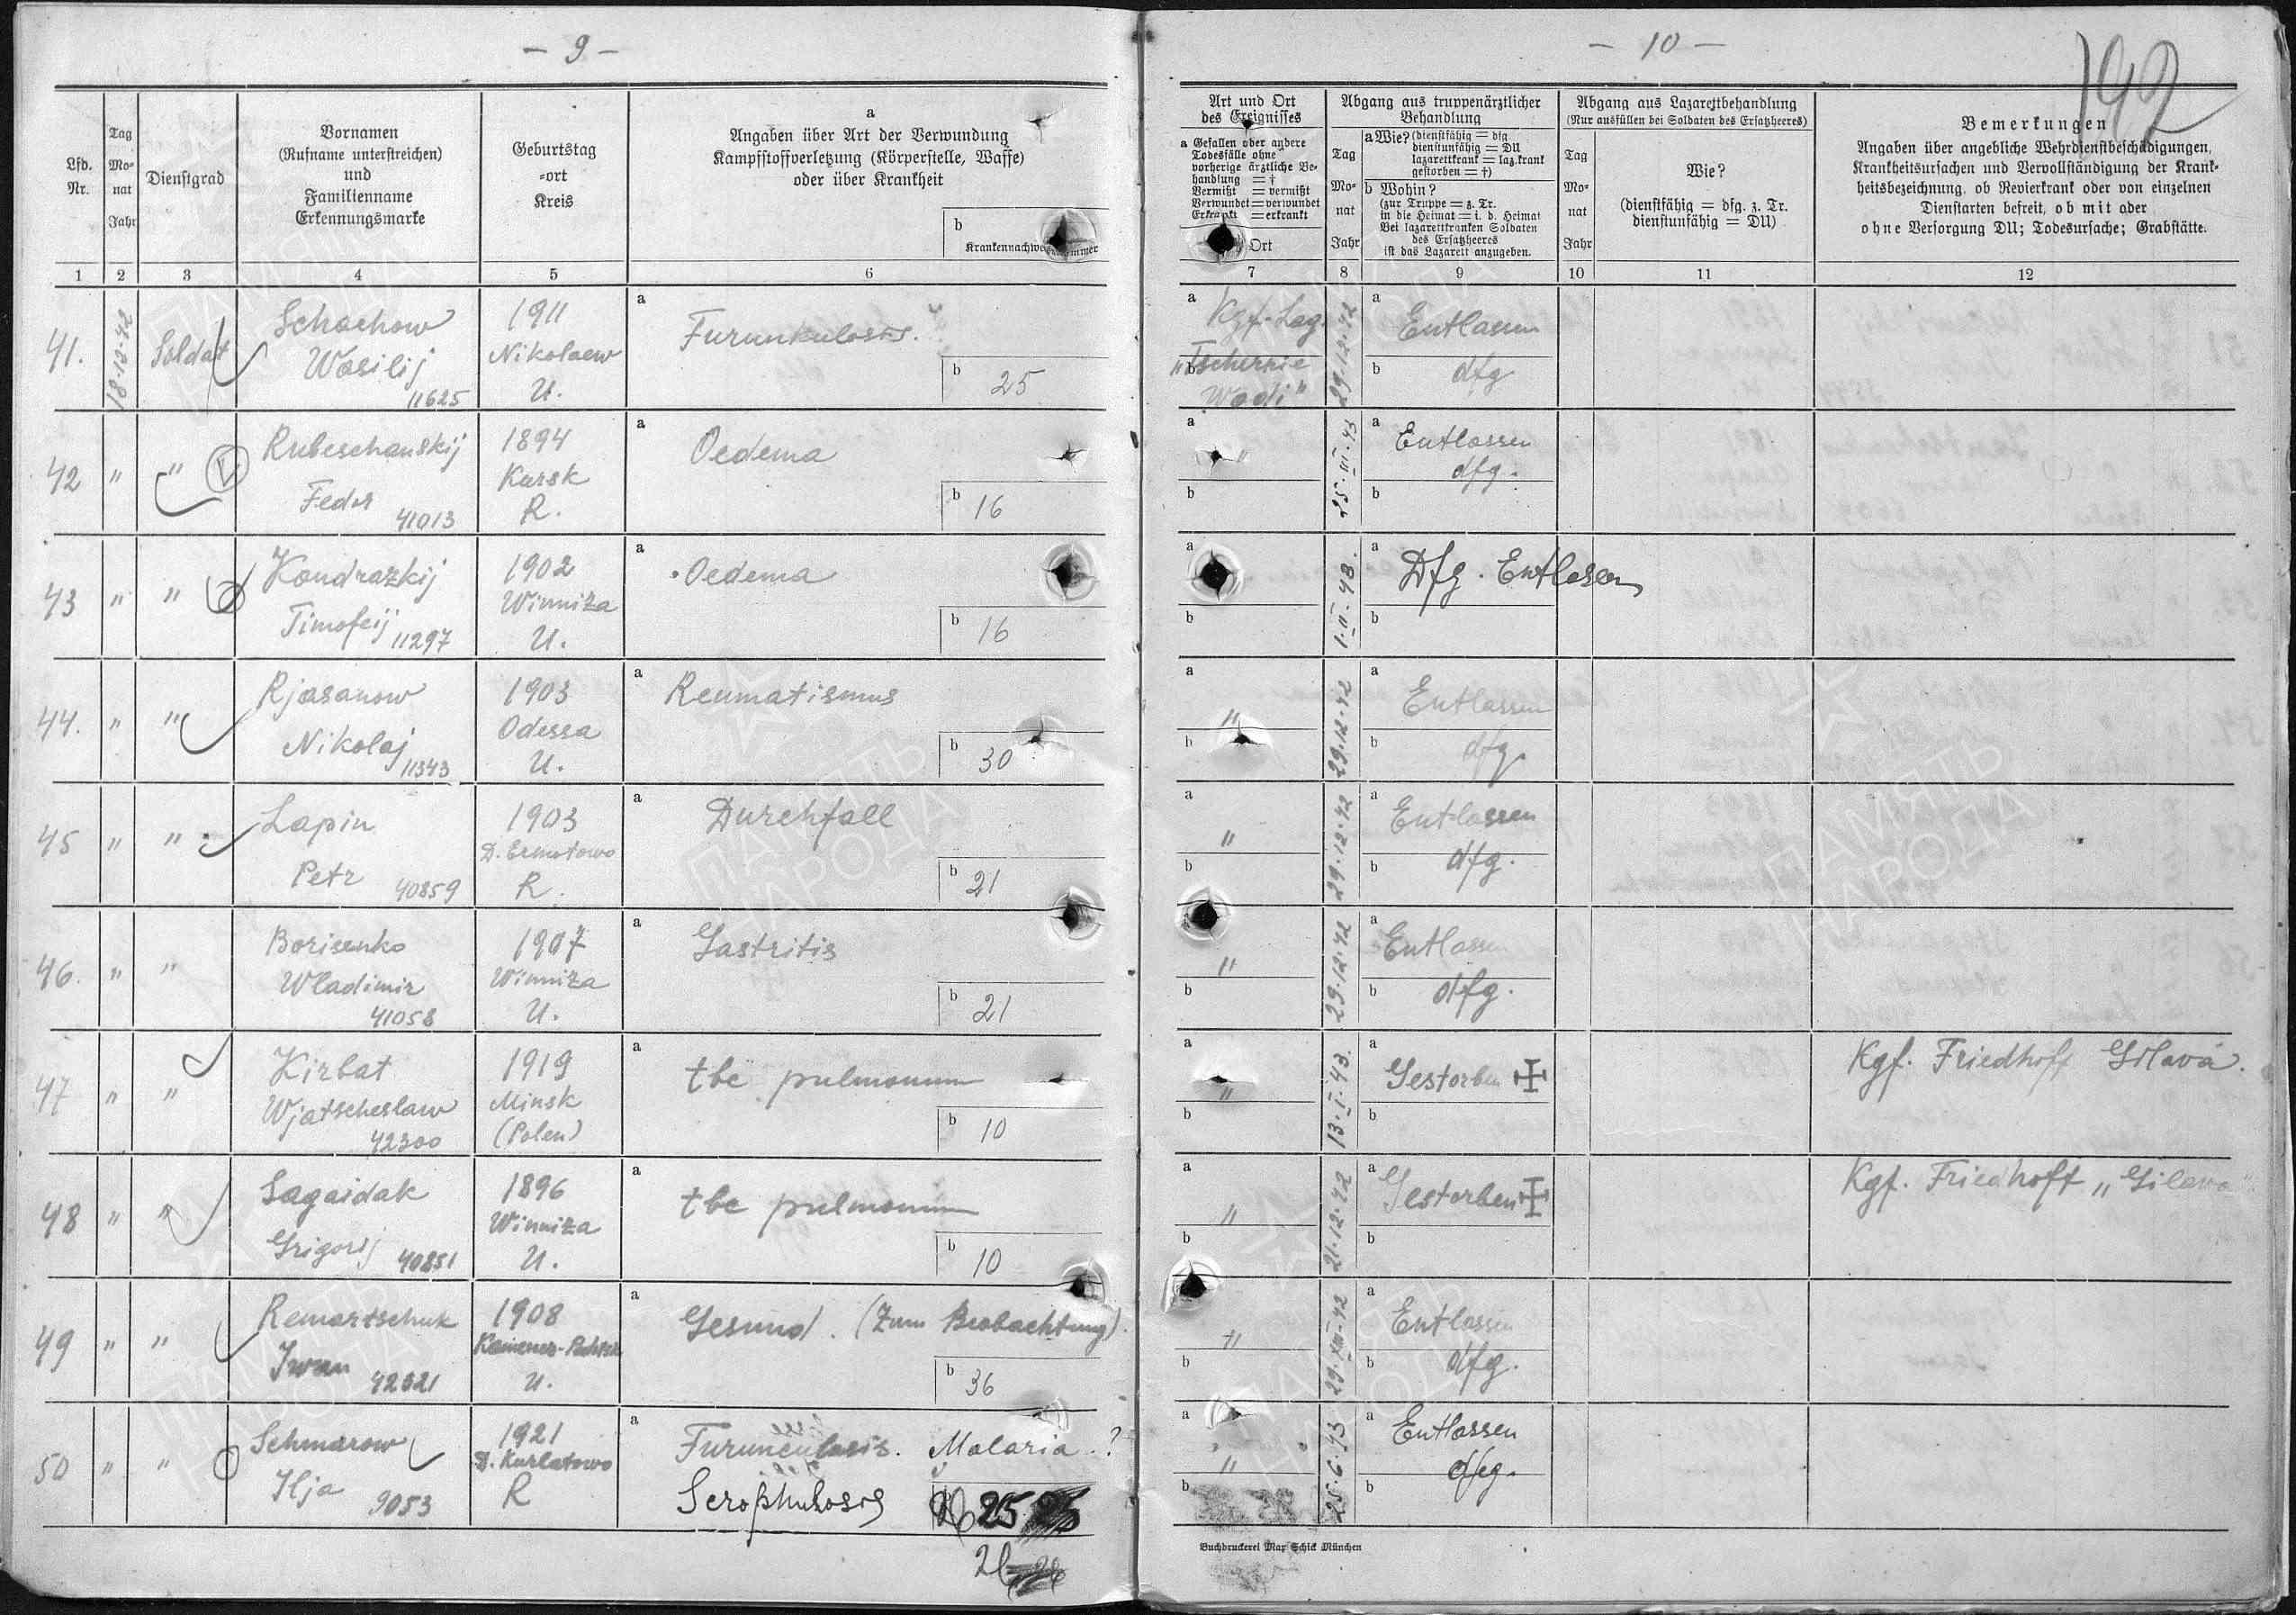 - 9 -
Lfd. Nr.
Tag Monat Jahr
Dienstgrad
Vornamen
(Rufname unterstreichen)
und
Familienname
Erkennungsmarke
Geburtstag
-ort
Kreis
a
Angaben über Art der Verwundung
Kampfstoffverletzung (Körperstelle, Waffe)
oder über Krankheit
b
1 2 3 4 5 6
41. 18.12.42 Soldat
Schachow
Wasilij
11625
1911
Nikolaew
U.
a Furunkulosis.
b 25
42 " "
Rubeschanskij
Fedor 41013
1894
Kursk
R.
a Oedema
b 16
43 " "
Kondrazkij
Timofeij 11297
1902
Winniza
U.
a Oedema
b 16
44. " "
Rjasanow
Nikolaj
11343
1903
Odessa
U.
a Reumatismus
b 30
45 " "
Lapin
Petr 40859
1903
D. Ermotowo
R.
a Durchfall
b 21
46. " "
Borisenko
Wladimir
41058
1907
Winniza
U.
a Gastritis
b 21
47 " "
Kirbat
Wjatscheslaw
42300
1919
Minsk
(Polen)
a tbc pulmonum
b 10
48 " "
Sagaidak
Grigorij 40851
1896
Winniza
U.
a tbc pulmonum
b 10
49 " "
Remartschuk
Iwan 42021
1908
U.
a Gesund. (Zum Beobachtung).
b 36
50 " "
Schmarow
Ilja 9053
1921
D. Kurlatowo
R
a Furunculosis. Malaria.?
Scrophulosis
25
- 10 -
192
Art und Ort
des Ereignisses
a Gefallen oder andere
Todesfälle ohne
vorherige ärztliche Be-
handlung = †
Vermißt = vermißt
Verwundet = verwundet
Erkrankt = erkrankt
Ort
Abgang aus truppenärztlicher
Behandlung
Tag Monat Jahr
a Wie? (dienstfähig = dfg.
dienstunfähig = DU
lazarettkrank = laz.krank
gestorben = †)
b Wohin?
(zur Truppe = z. Tr.
in die Heimat = i. d. Heimat
Bei lazarettkranken Soldaten
des Ersatzheeres
ist das Lazarett anzugeben.
Abgang aus Lazarettbehandlung
(Nur ausfüllen bei Soldaten des Ersatzheeres)
Tag Monat Jahr
Wie?
(dienstfähig = dfg. z. Tr.
dienstunfähig = DU)
Bemerkungen
Angaben über angebliche Wehrdienstbeschädigungen,
Krankheitsursachen und Vervollständigung der Krank-
heitsbezeichnung, ob Revierkrank oder von einzelnen
Dienstarten befreit, ob mit oder
ohne Versorgung DU; Todesursache; Grabstätte.
7 8 9 10 11 12
a Kgf.-Lag.
b "Tschernie
Wodi"
29.12.42
a Entlassen
b dfg
a "
b
25.III.43
a Entlassen
dfg.
b
a
b
1.II.43.
a Dfg. Entlassen
b
a "
b
29.12.42
a Entlassen
b dfg.
a "
b
29.12.42
a Entlassen
b dfg.
"
b
29.12.42
a Entlassen
b dfg.
a "
b
13.I.43.
a Gestorben ✠
b
Kgf. Friedhoff Gilava.
a "
b
21.12.42
a Gestorben ✠
b
Kgf. Friedhoff „Gilava"
a "
b
29.XII.42
a Entlassen
b dfg.
a "
b
25.6.43
a Entlassen
dfg.
b
Buchdruckerei Max Schick München
ПАМЯТЬ
НАРОДА